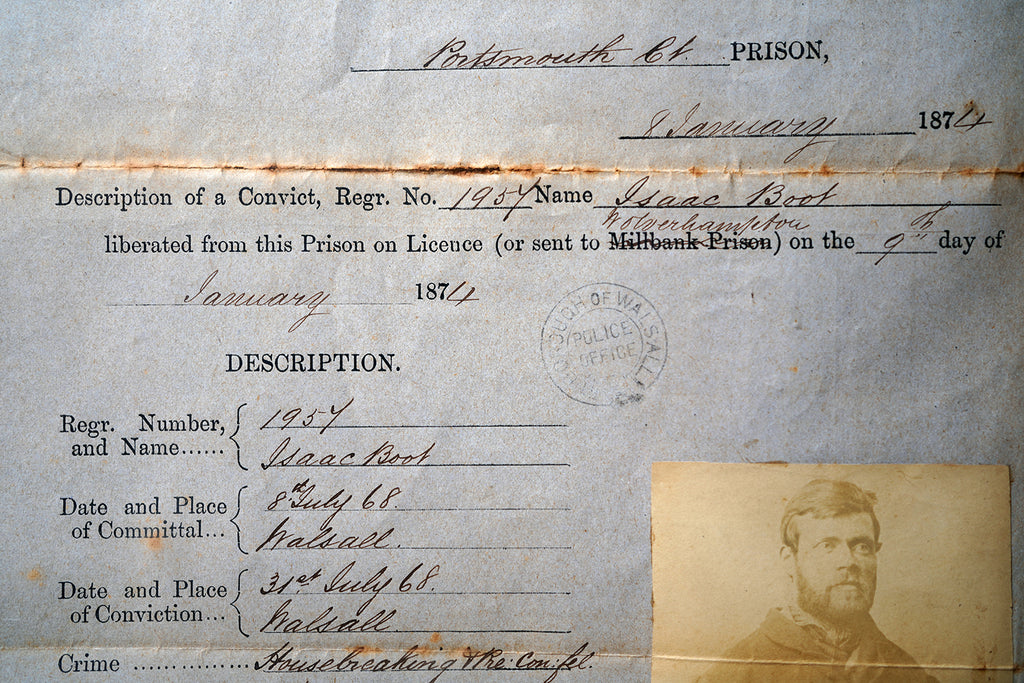 Portsmouth Ct. PRISON,
8 January 1874
Description of a Convict, Regr. No. 1957 Name Isaac Boot
Wolverhampton
liberated from this Prison on Licence (or sent to Millbank Prison) on the 9th day of
January 1874
BOROUGH OF WALSALL
POLICE
OFFICE
DESCRIPTION.
Regr. Number, and Name...... { 1957
Isaac Boot
Date and Place of Committal... { 8th July 68.
Walsall.
Date and Place of Conviction... { 31st July 68.
Walsall.
Crime ................ Housebreaking & Pre: Con: fel.